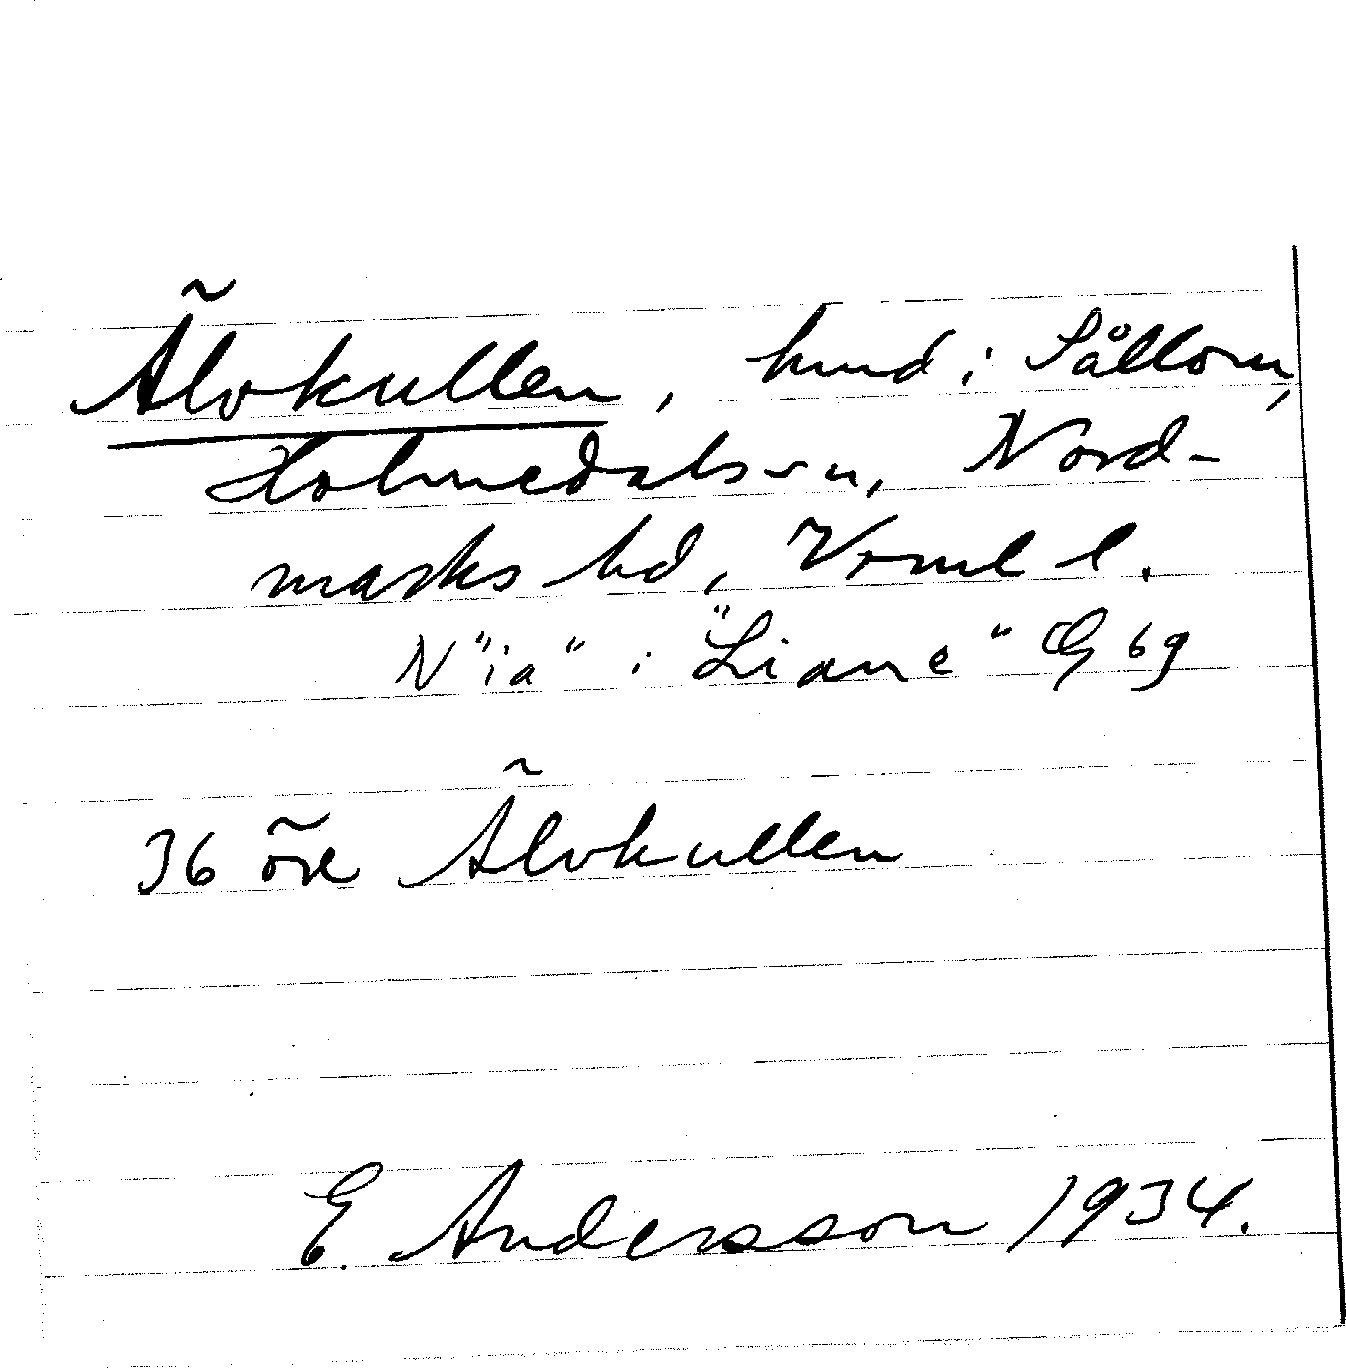 Älvkullen, hmd i Sållom,
Holmedals sn, Nord-
marks hd, Vrml l.
N "ia" i "Liane" G 69
36 öre Älvkullen
E. Andersson 1934.